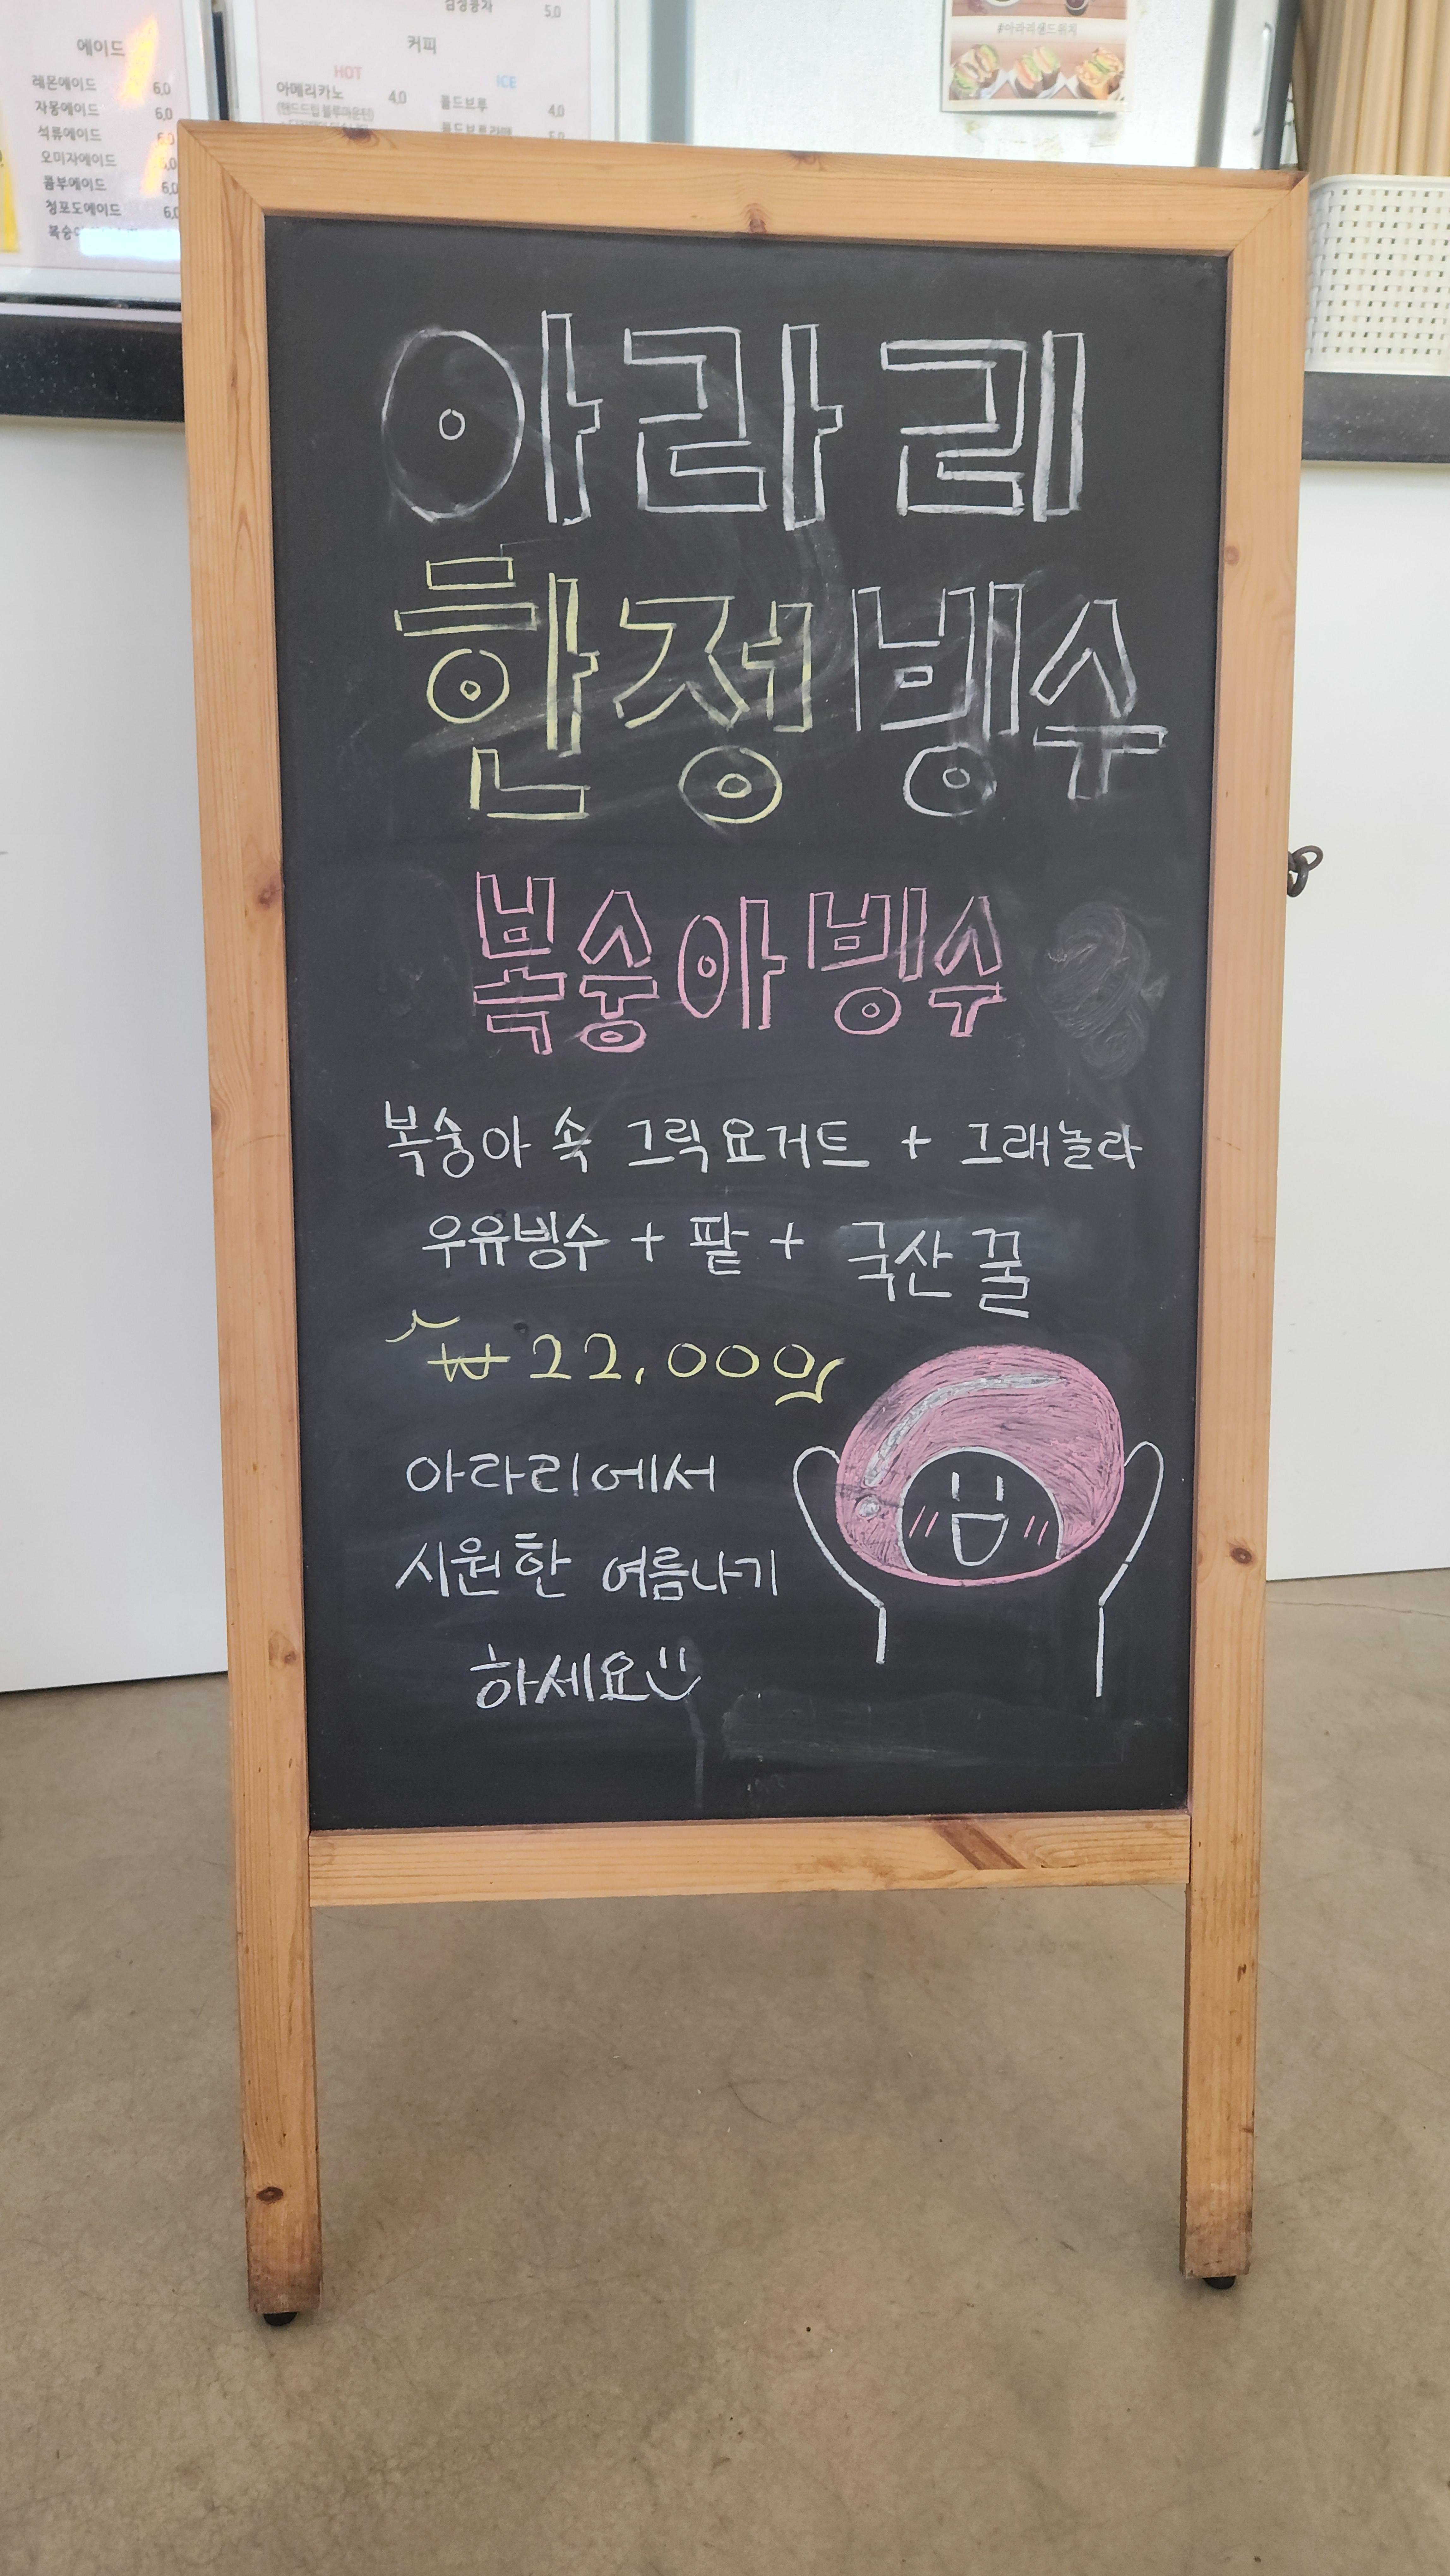 에이드
레몬에이드 6,0
자몽에이드 6,0
석류에이드 6,0
오미자에이드
콤부에이드 6,0
청포도에이드 6,0
5,0
커피
HOT
ICE
아메리카노 4,0
(핸드드립 블루마운틴)
콜드브루 4,0
콜드브루라떼 5,0
#아라리샌드위치
아라리
한정빙수
복숭아빙수
복숭아 속 그릭요거트 + 그래놀라
우유빙수 + 팥 + 국산 꿀
₩ 22,000
아라리에서
시원한 여름나기
하세요